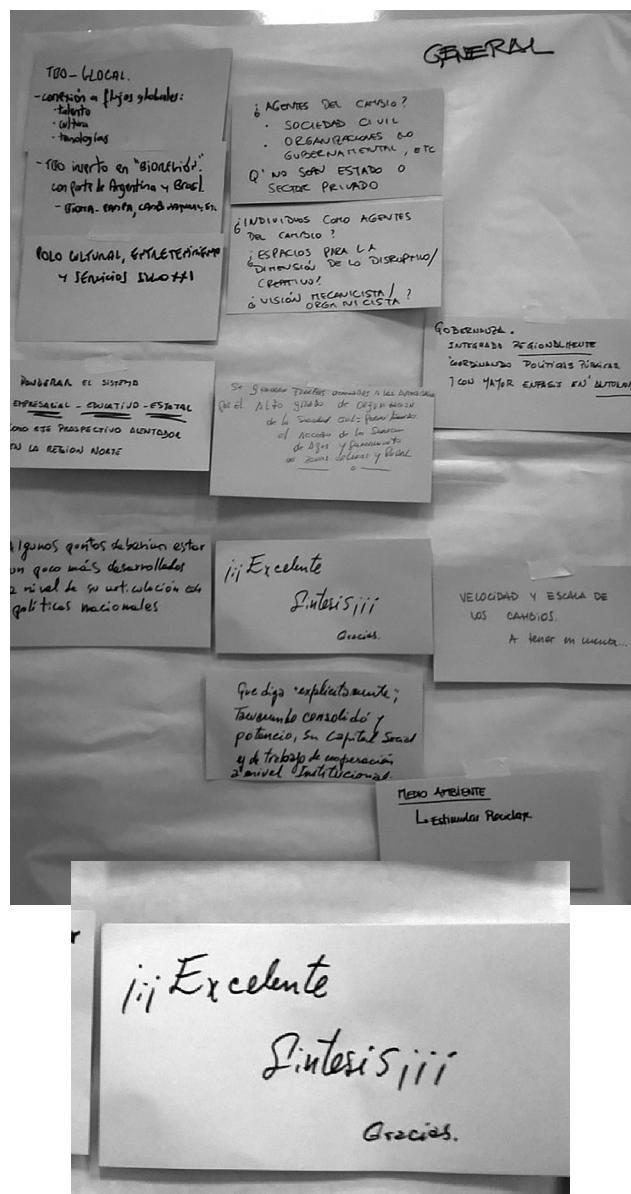 GENERAL
TBO-GLOCAL.
-conexión a flujos globales:
· talento
· cultura
· tecnologías
- TBO inserto en "BIOREGIÓN".
con parte de Argentina y Brasil
- BIOMA - PAMPA,
POLO CULTURAL, ENTRETENIMIENTO
Y SERVICIOS SIGLO XXI
¿AGENTES DEL CAMBIO?
· SOCIEDAD CIVIL
· ORGANIZACIONES NO
GUBERNAMENTAL, ETC
Q' NO SEAN ESTADO O
SECTOR PRIVADO
¿INDIVIDUOS COMO AGENTES
DEL CAMBIO?
¿ESPACIOS PARA LA
DIMENSIÓN DE LO DISRUPTIVO/
CREATIVO?
¿VISIÓN MECANICISTA/
ORGANICISTA?
GOBERNANZA.
INTEGRADA REGIONALMENTE
COORDINANDO POLÍTICAS PÚBLICAS
Y CON MAYOR ENFASIS EN
PONDERAR EL SISTEMA
EMPRESARIAL - EDUCATIVO - ESTATAL
COMO EJE PROSPECTIVO ALENTADOR
EN LA REGION NORTE
Se
por el Alto grado de Organización
de la Sociedad Civil
el Acceso de la
de Agua y Saneamiento
en zonas y Rural
Algunos puntos deberían estar
un poco más desarrollados
a nivel de su articulación con
políticas nacionales
¡¡¡Excelente
Síntesis¡¡¡
Gracias.
VELOCIDAD Y ESCALA DE
LOS CAMBIOS.
A tener en cuenta...
Que diga "explicitamente",
Tacuarembo consolidó y
potencio, su Capital Social
y de trabajo de cooperación
a nivel Institucional.
MEDIO AMBIENTE
Estimular Reciclar
¡¡¡Excelente
Síntesis¡¡¡
Gracias.